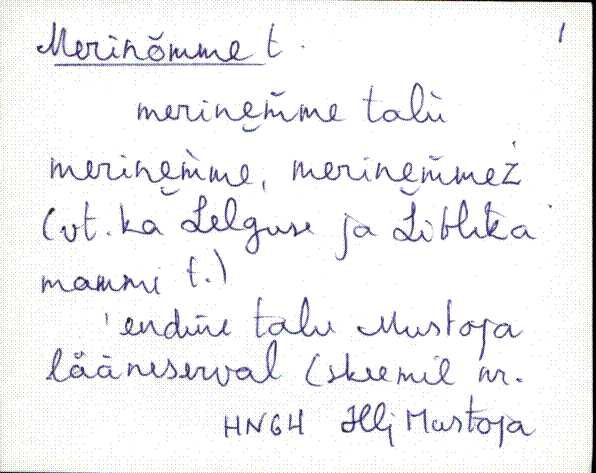 Merinõmme t. 1
merine̮m̄me talù
merine̮m̀me, merine̮m̄meź
(vt. ka Lelguse ja Liblika
mammi t.)
'endine talu Mustoja
lääneserval (skeemil nr.
HN64 Hlj Mustoja